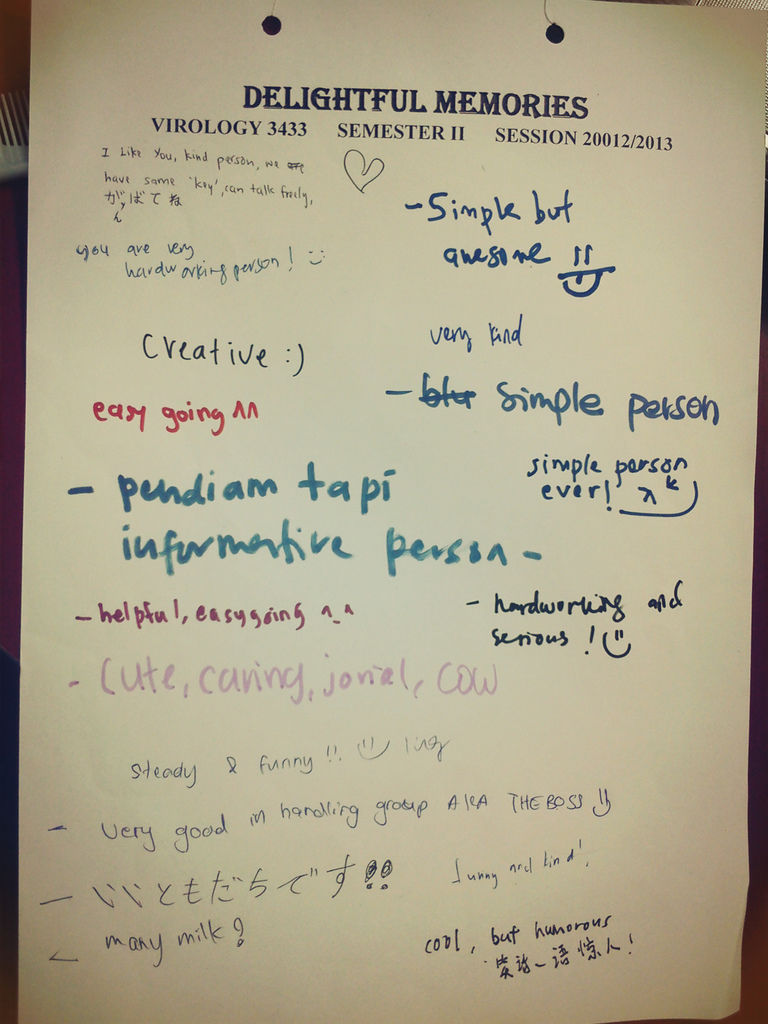 DELIGHTFUL MEMORIES
VIROLOGY 3433 SEMESTER II SESSION 20012/2013
I Like You, kind person, we are
have same 'key', can talk freely,
がんばてね
you are very
hardworking person!
- Simple but
awesome !!
very kind
Creative :)
easy going ^^
- simple person
simple person
ever!
- pendiam tapi
informative person -
- helpful, easygoing ^_^
- hardworking and
serious !
- Cute, caring, jovial, cow
steady & funny !!. ling
- very good in handling group AKA THE BOSS
- いいともだちです!!
funny and kind!
many milk?
cool, but humorous
笑话一语惊人!